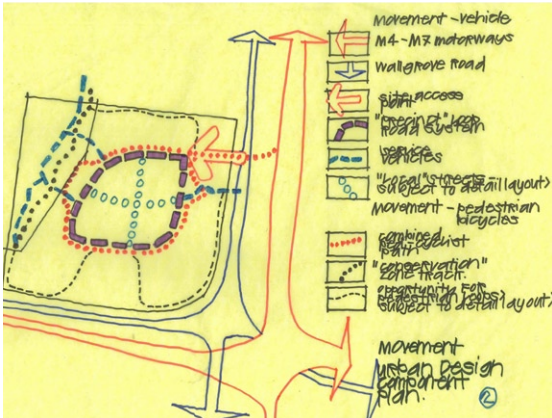 movement - vehicle
M4 - M7 motorways
wallgrove road
site access
point
"precinct" loop
road system
service
vehicles
"local" streets -
subject to detail layout
movement - pedestrian
bicycles
combined
ped/cyclist
path
"conservation"
zone track.
opportunity for
pedestrian loops
subject to detail layout
movement
urban design
component
plan.
2